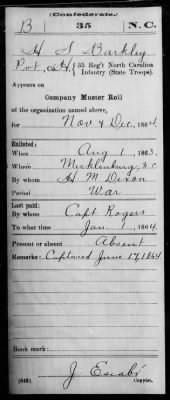 (Confederate.)
B 35 N.C.
H S Barkley
Pvt, Co H, 35 Reg't North Carolina
Infantry (State Troops).
Appears on
Company Muster Roll
of the organization named above,
for Nov & Dec, 1864
Enlisted:
When Aug 1, 1863.
Where Mecklenburg N C
By whom H M Dixon
Period War
Last paid:
By whom Capt Rogers
To what time Jan 1, 1864.
Present or absent Absent
Remarks: Captured June 17, 1864
Book mark:
(642) J Escabi
Copyist.